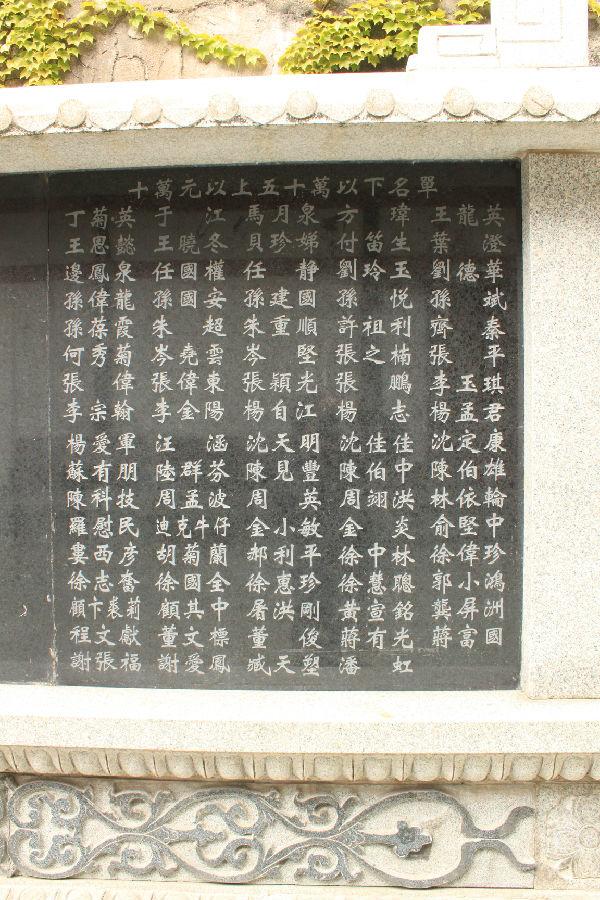 十萬元以上五十萬以下名單
英澄華斌秦平琪君康雄輪中珍鴻洲國
龍 德 玉孟定伯依堅偉小屏富
王葉劉孫齊張李楊沈陳林俞徐郭龔蔣
瑋生玉悦利楠鵬志佳中洪炎林聰銘光虹
笛玲 祖之 佳伯翊 中慧宣有
方付劉孫許張張楊沈陳周金徐徐黃蔣潘
泉娣静國順堅光江明豐英敏平珍剛俊塑
月珍 建重 穎自天見 小利惠洪 天
馬貝任孫朱岑張楊沈陳周金郝徐屠董臧
江冬權安超雲東陽涵芬波仔蘭全中標鳳
曉國國 堯偉金 群孟克牛菊國其文愛
于王任孫朱岑張李汪陸周迪胡徐顧董謝
英懿泉龍霞菊偉翰軍朋技民彦奮莉獻福
菊思鳳偉葆秀 宗愛有科慰西志卞裘文張
丁王邊孫孫何張李楊蘇陳羅婁徐顧程謝